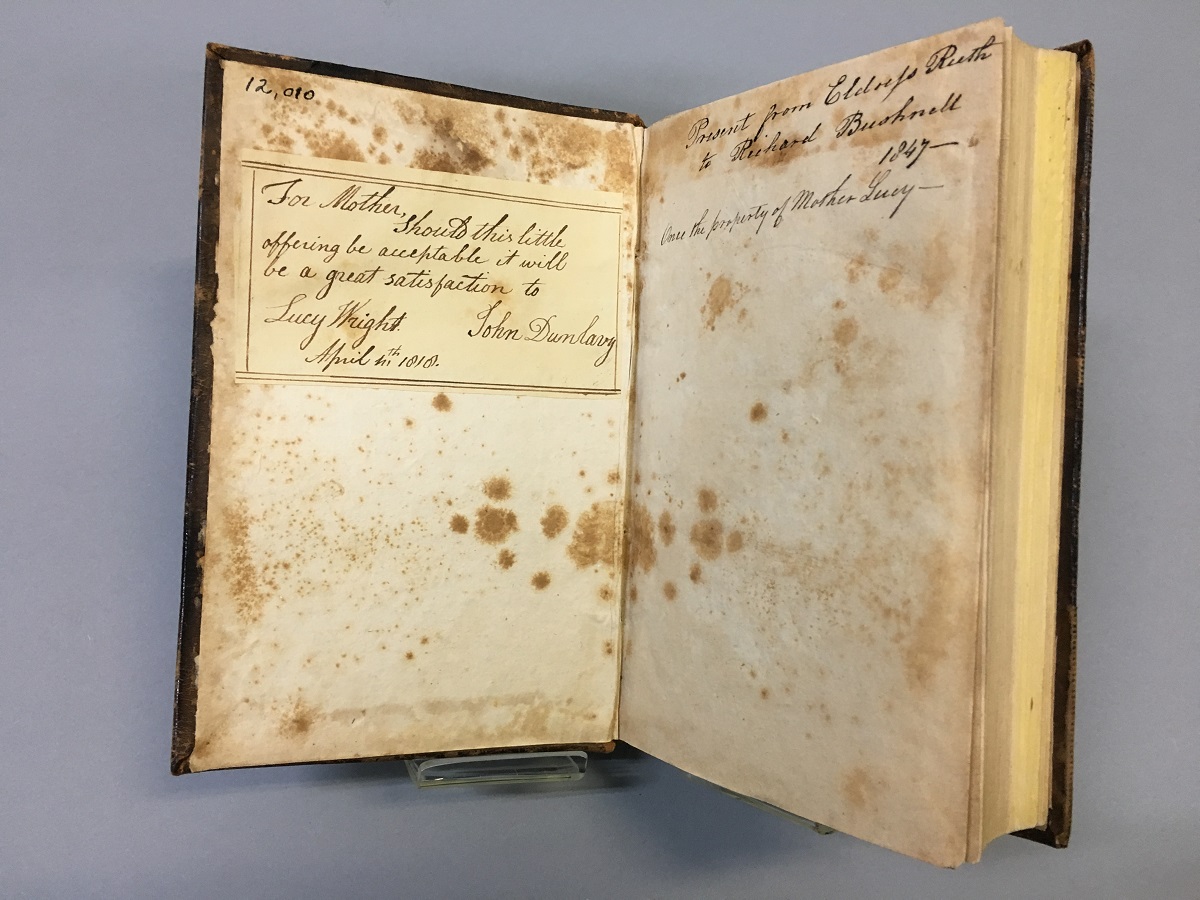 12,010
For Mother,
Should this little
offering be acceptable it will
be a great satisfaction to
Lucy Wright. John Dunlavy
April 4th 1818.
Present from Eldress Ruth
to Richard Bushnell
1847—
Once the property of Mother Lucy—